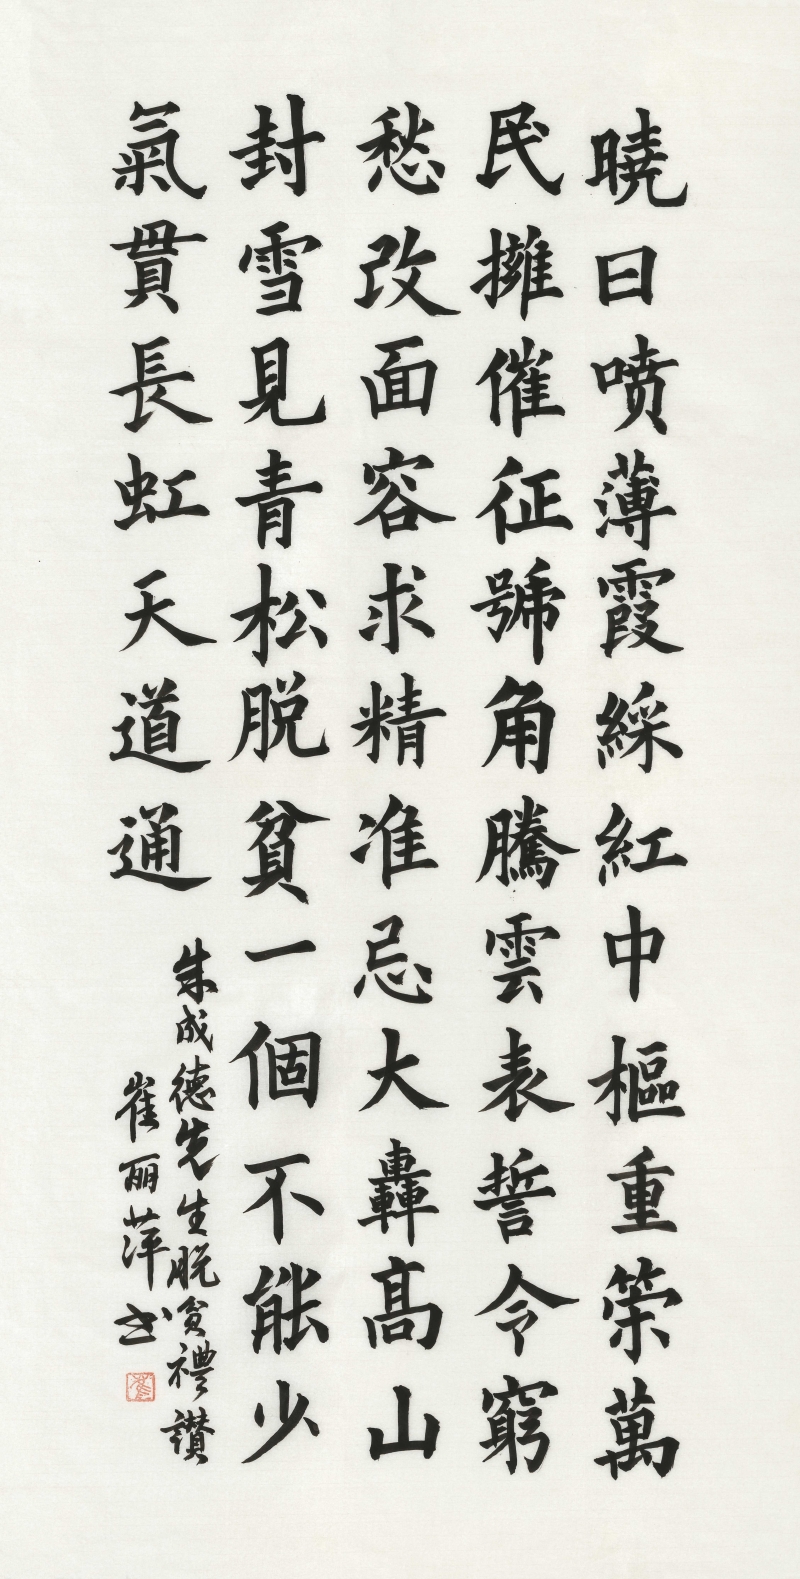 曉日喷薄霞綵紅中樞重策萬
民擁催征號角騰雲表誓令窮
愁改面容求精准忌大轟高山
封雪見青松脱貧一個不能少
氣貫長虹天道通
朱成德先生脱贫禮讃
崔丽萍书